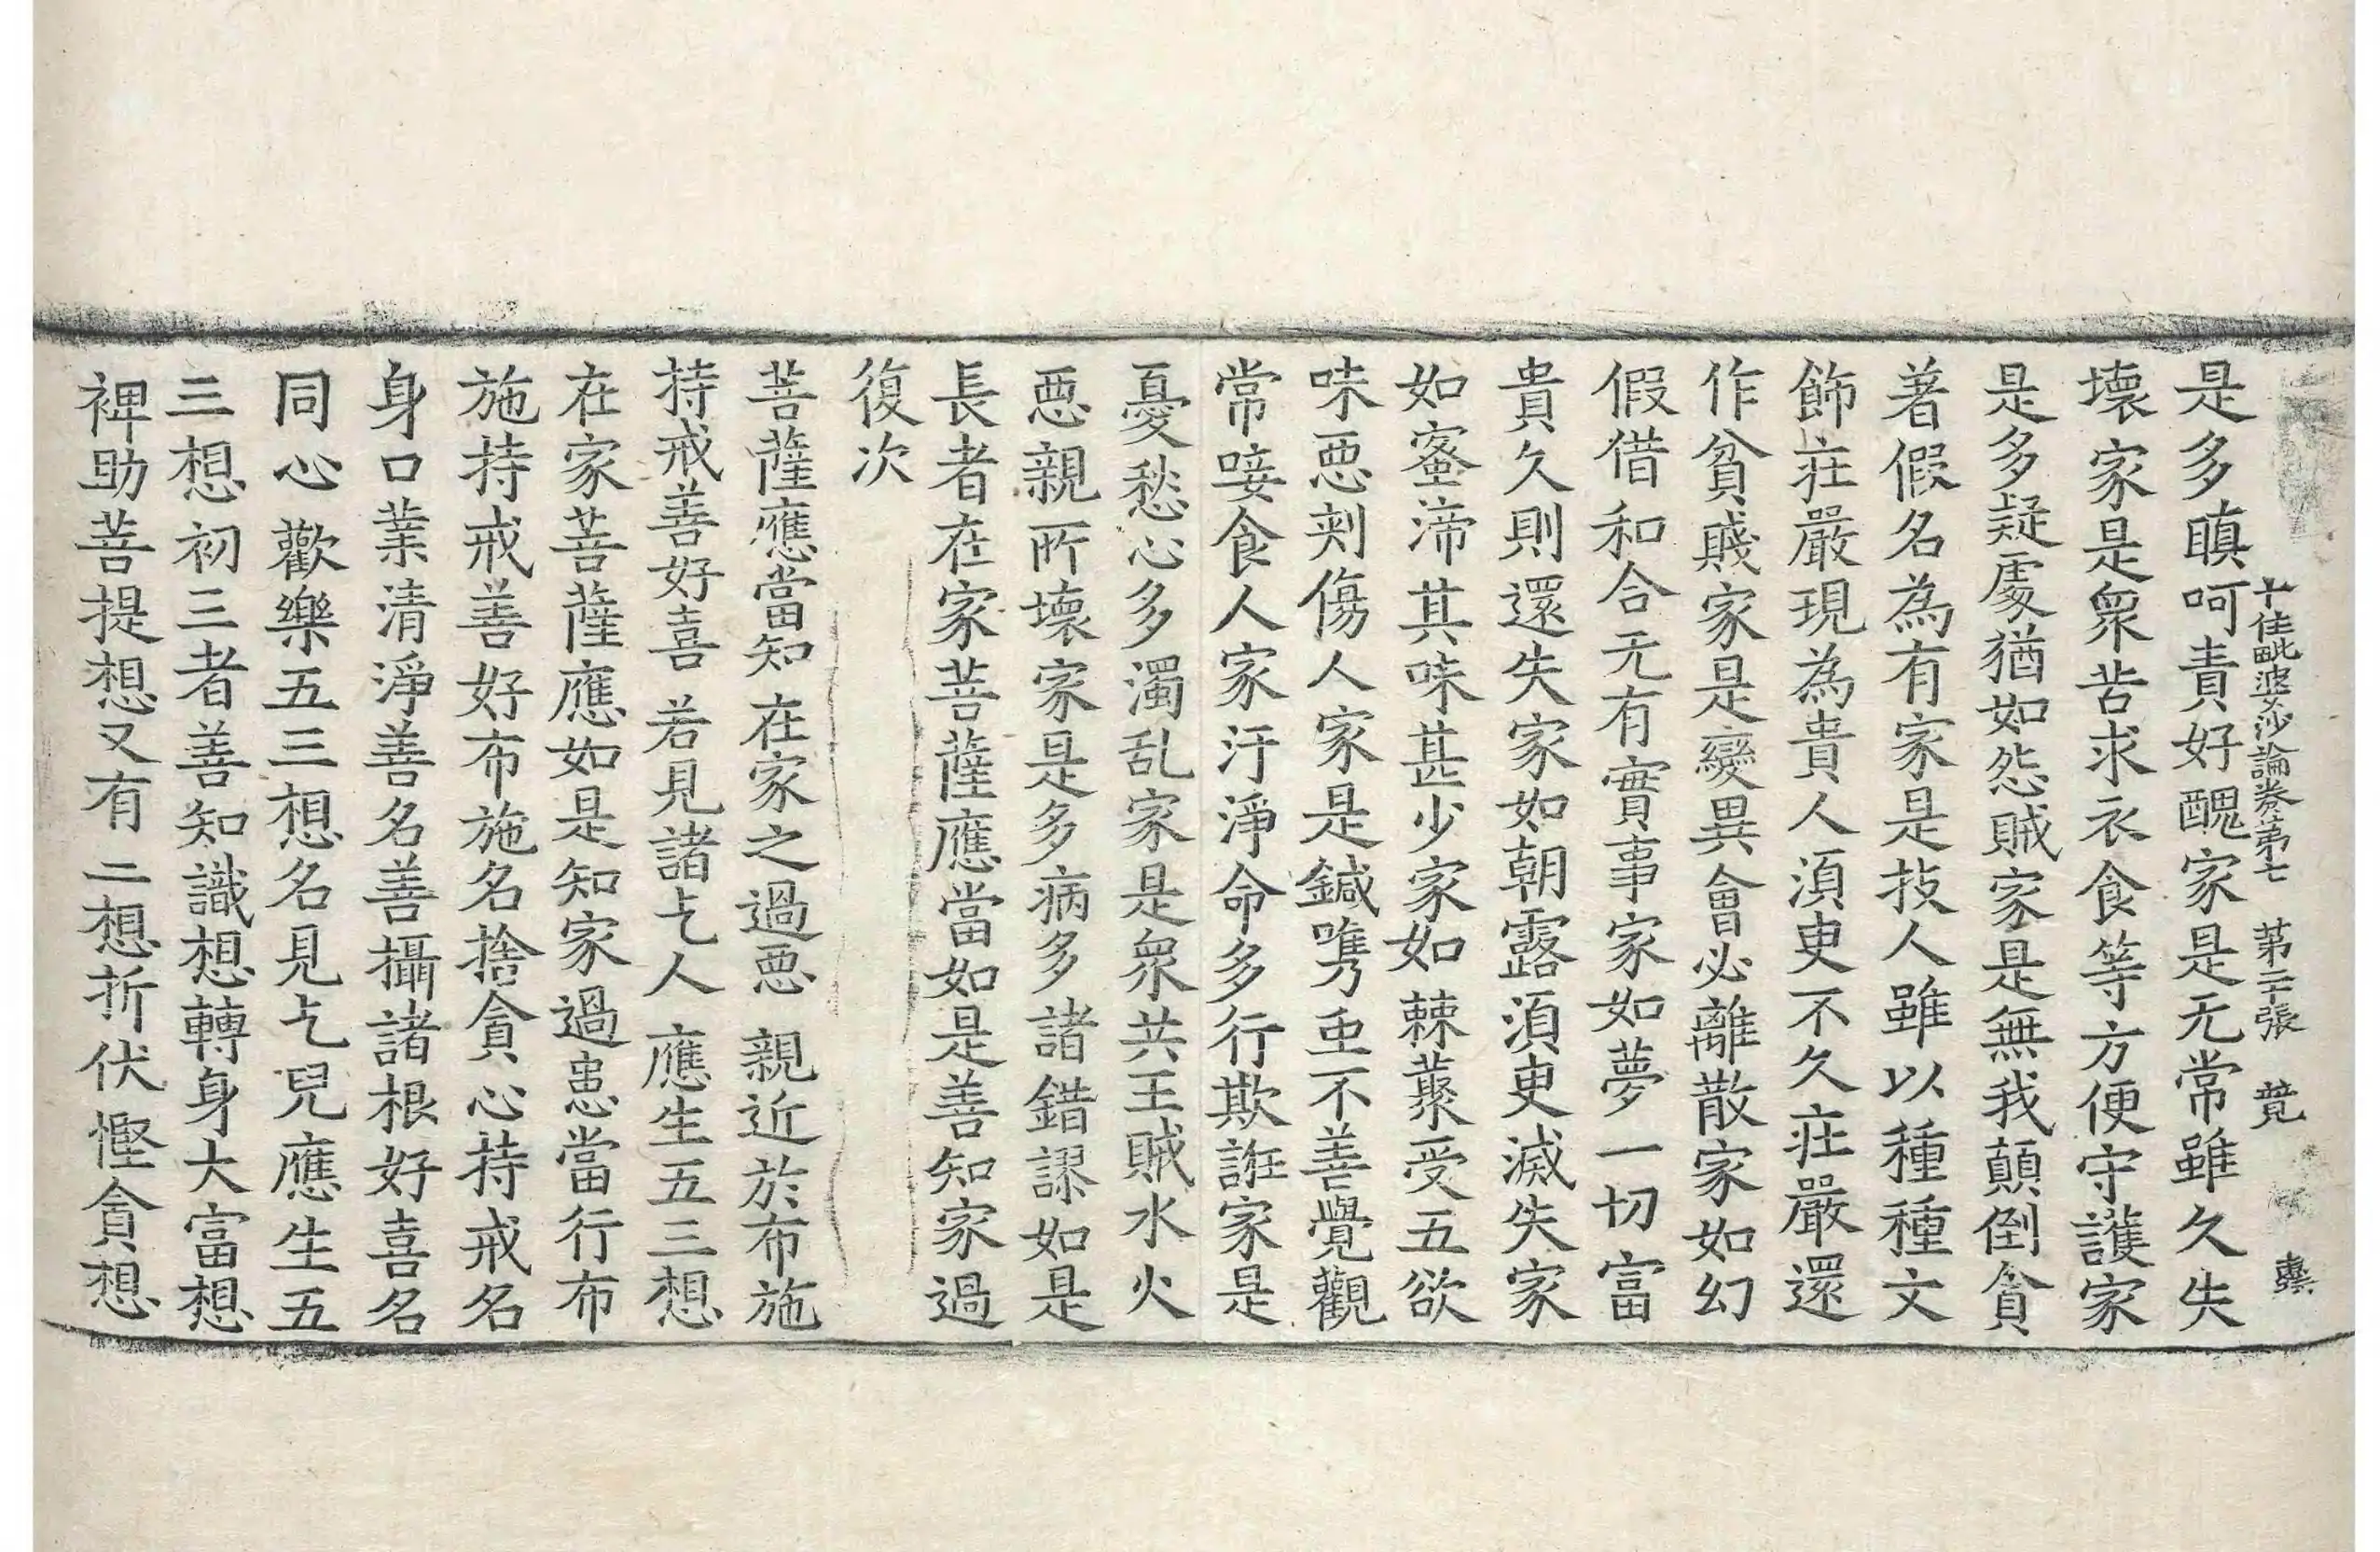 十住毗婆沙論卷第七 第二十張 竟
是多瞋呵責好醜家是无常雖久失
壞家是衆苦求衣食等方便守護家
是多疑處猶如怨賊家是無我顛倒貪
著假名為有家是技人雖以種種文
飾莊嚴現為貴人湏臾不久莊嚴還
作貧賤家是變異會必離散家如幻
假借和合无有實事家如夢一切富
貴久則還失家如朝露湏臾滅失家
如蜜渧其味甚少家如棘藂受五欲
味惡刾傷人家是鍼嘴虫不善覺觀
常唼食人家汙淨命多行欺誑家是
憂愁心多濁乱家是衆共王賊水火
惡親所壞家是多病多諸錯謬如是
長者在家菩薩應當如是善知家過
復次
菩薩應當知 在家之過惡 親近於布施
持戒善好喜 若見諸乞人 應生五三想
在家菩薩應如是知家過患當行布
施持戒善好布施名捨貪心持戒名
身口業清淨善名善攝諸根好喜名
同心歡樂五三想名見乞兒應生五
三想初三者善知識想轉身大富想
裨助菩提想又有二想折伏慳貪想